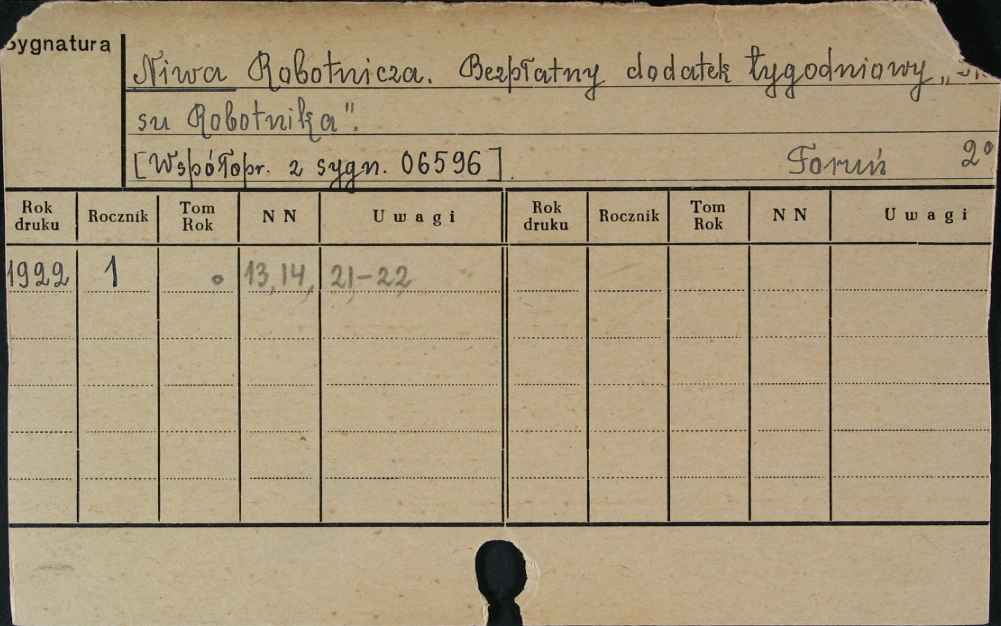 Sygnatura
Niwa Robotnicza. Bezpłatny dodatek tygodniowy „
su Robotnika".
[Współopr. z sygn. 06596] Toruń 2°
Rok druku Rocznik Tom Rok NN Uwagi Rok druku Rocznik Tom Rok NN Uwagi
1922 1 13, 14, 21-22